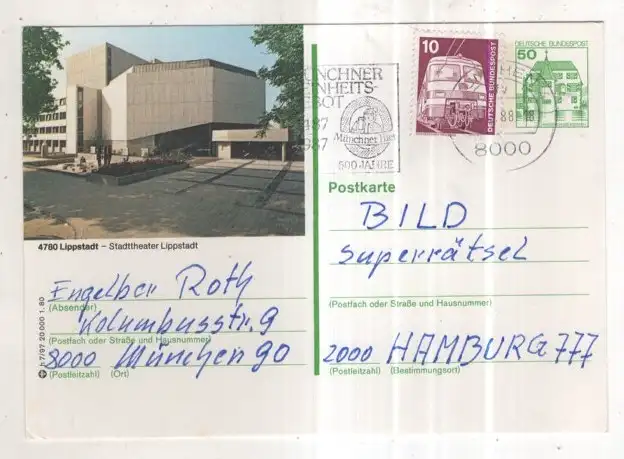 MÜNCHNER
EINHEITS-
BOT
1487
1987
Münchner Bier
500 JAHRE
10
DEUTSCHE BUNDESPOST
DEUTSCHE BUNDESPOST
50
88
8000
4780 Lippstadt – Stadttheater Lippstadt
Postkarte
BILD
Superrätsel
(Postfach oder Straße und Hausnummer)
2000 HAMBURG 777
(Postleitzahl) (Bestimmungsort)
Engelber Roth
(Absender)
Kolumbusstr. 9
(Postfach oder Straße und Hausnummer)
8000 München 90
(Postleitzahl) (Ort)
h 7/97 20 000 1. 80